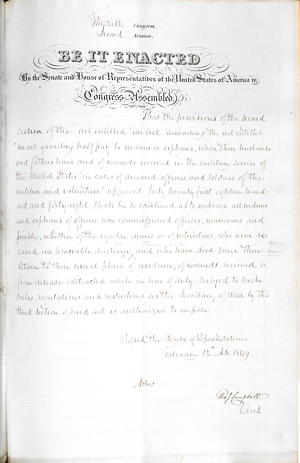 Thirtieth Congress
Second Session,
BE IT ENACTED
By the Senate and House of Representatives of the United States of America in
Congress Assembled,
That the provisions of the second
section of the act entitled "an act amending the act entitled
"an act granting half pay to widows or orphans, where their husbands
and fathers have died of wounds received in the military service of
the United States" in cases of deceased officers and soldiers of the
militia and volunteers" approved July twenty first eighteen hund
red and forty-eight shall be so construed as to embrace all widows
and orphans of officers non-commissioned officers, musicians and
privates, whether of the regular army or of volunteers, who have re
ceived an honorable discharge, and who have died since their
return to their usual place of residence, of wounds received or
from disease contracted while in line of duty, subject to such
rules, regulations and restrictions as the Secretary of War by the
third section of said act is authorized to impose.
Passed the House of Representatives
February 12th A.D. 1849.
Attest
Tho J Campbell
Clerk